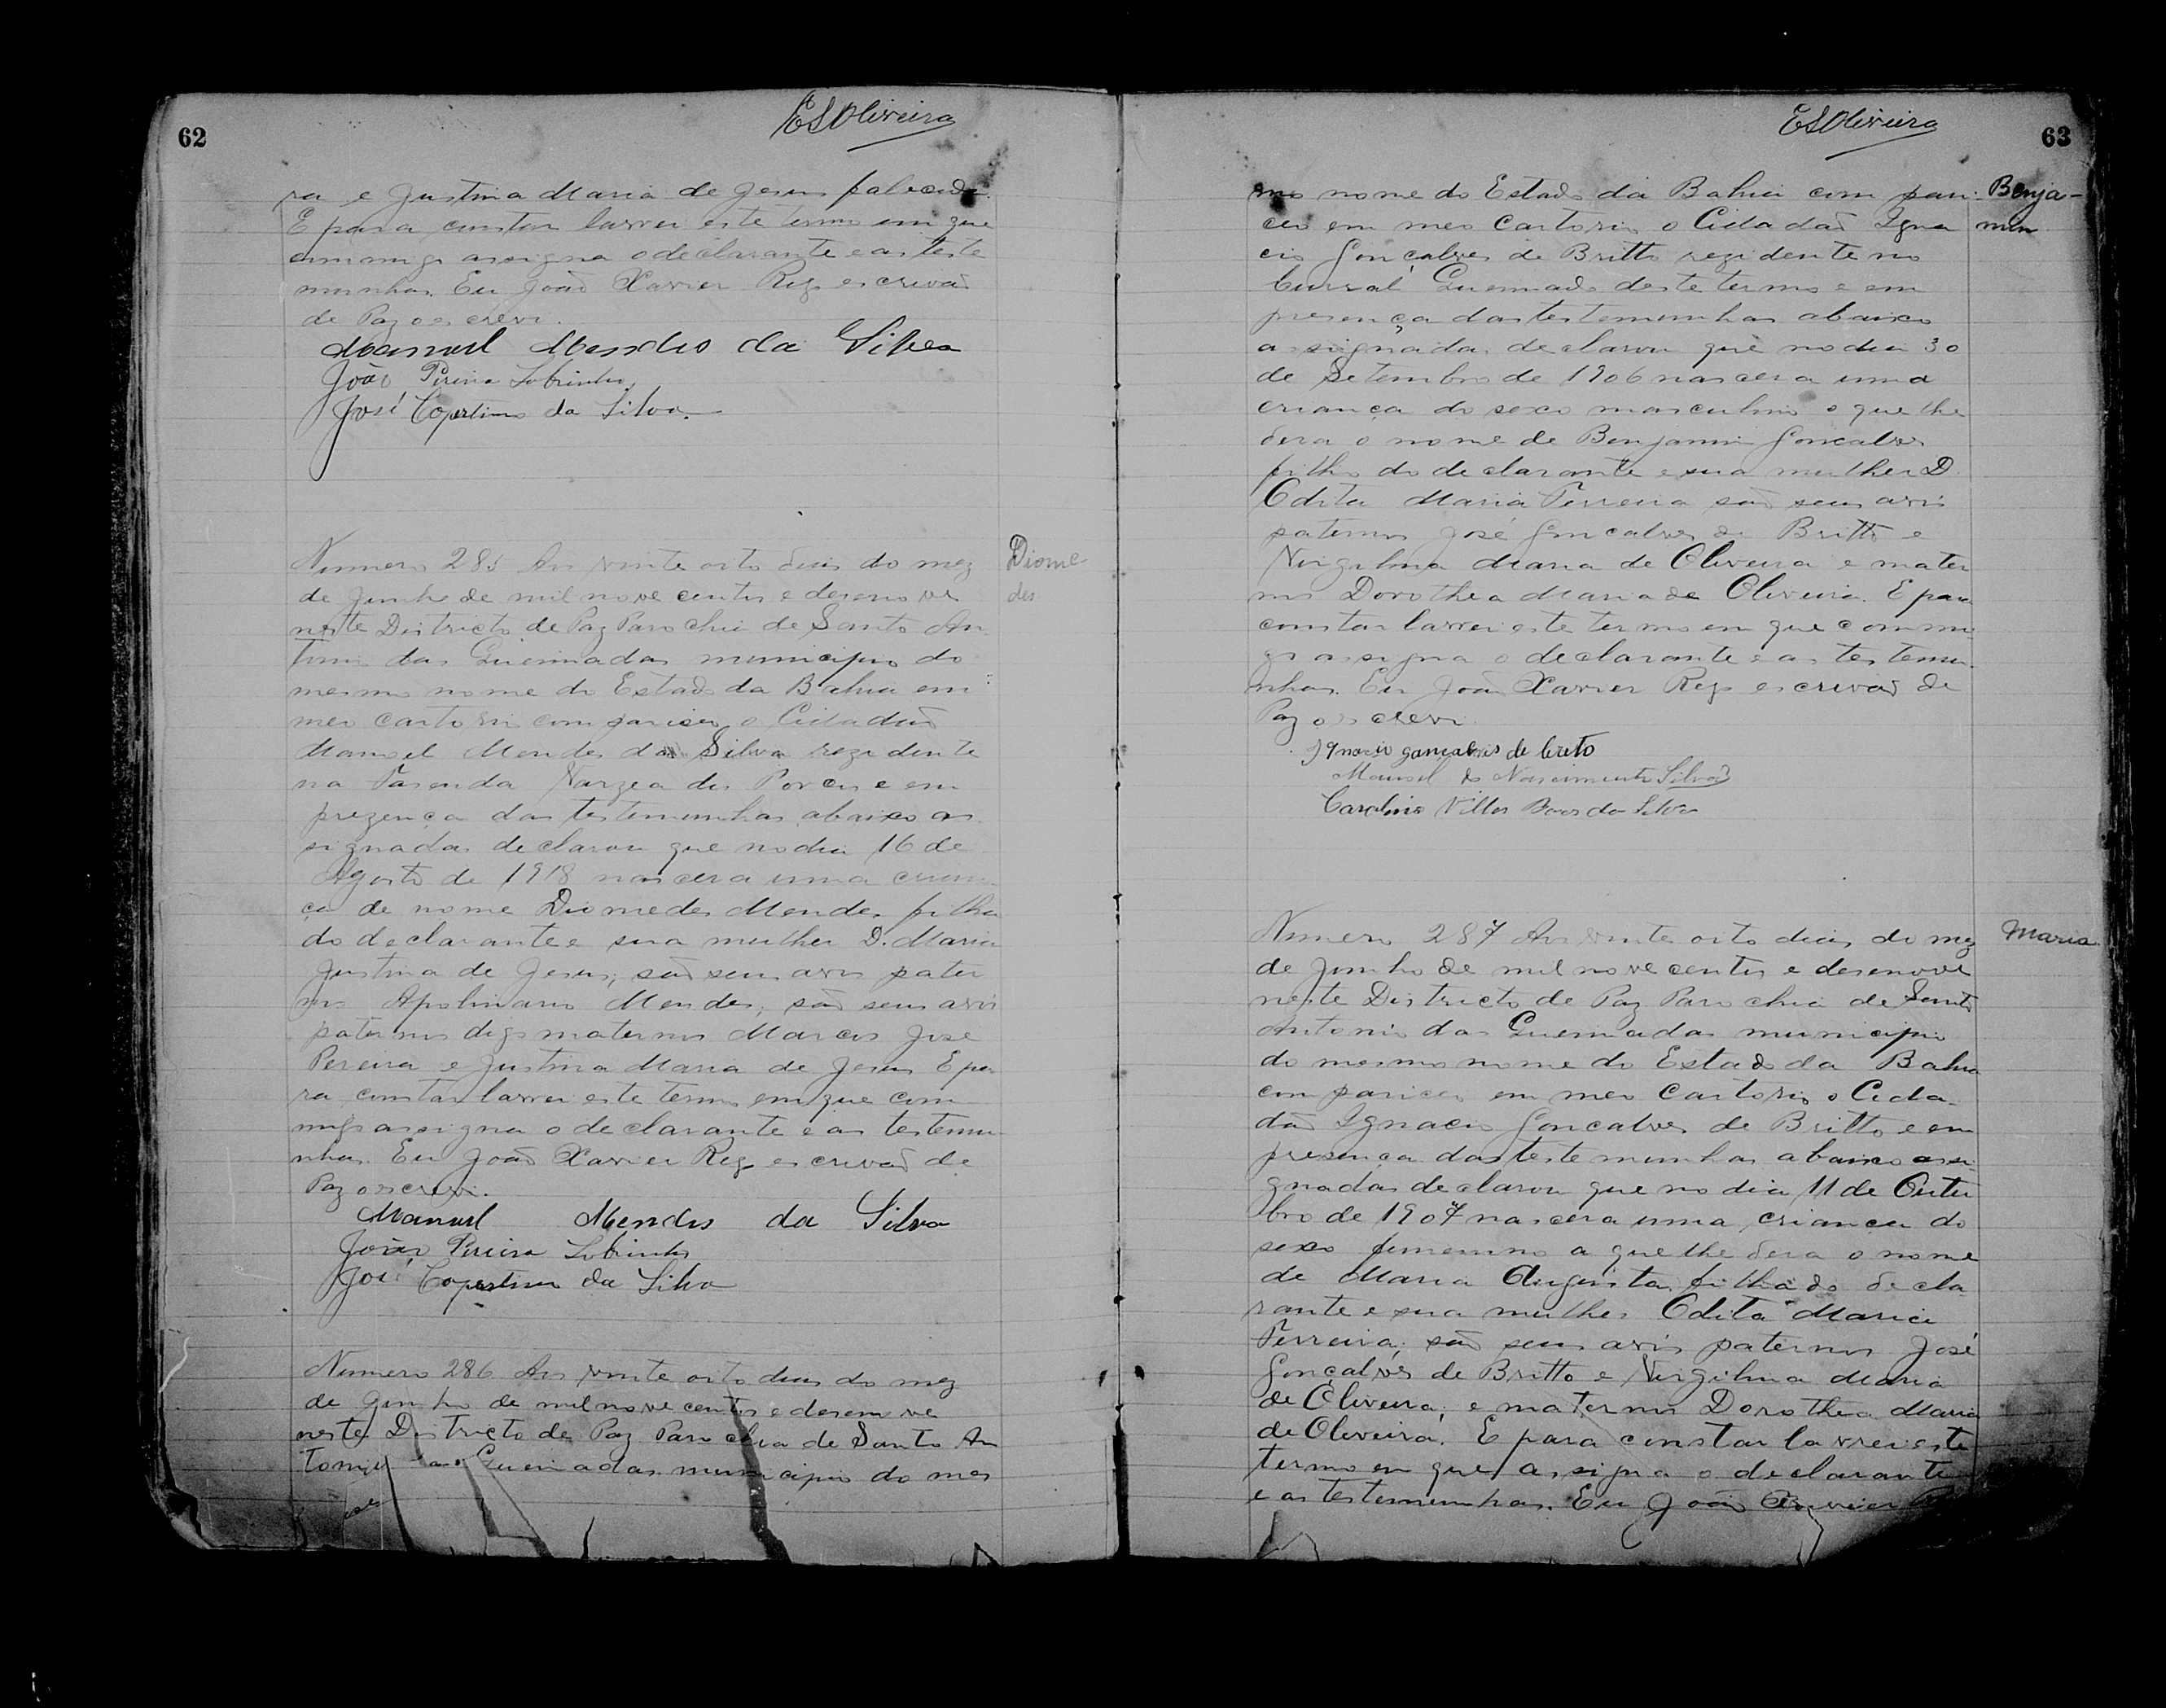 62
ESOliveira
ra e Justina Maria de Jesus falecida.
E para constar lavrei este termo em que
commigo assigna o declarante e as teste
munhas. Eu João Xavier Rego escrivão
de Paz o escrevi.
Manuel Mendes da Silva
João Pereira Sobrinho
José Copertino da Silva
Numero 285 Aos vinte oito dias do mez
Diome
de Junho de mil nove centos e desenove
des
neste Districto de Paz Parochia de Santo An
tonio das Queimadas municipio do
mesmo nome do Estado da Bahia em
meo cartorio compariceo o Cidadão
Manoel Mendes da Silva rezidente
na Fasenda Varzea dos Porcos e em
prezença das testemunhas abaixo as
signadas declarou que no dia 16 de
Agosto de 1918 nascera uma crian
ça de nome Diomedes Mendes filha
do declarante e sua mulher D. Maria
Justina de Jesus; são seus avos pater
nos Apolinario Mendes; são seus avós
paternos digo maternos Marcos José
Pereira e Justina Maria de Jesus E pa
ra constar lavrei este termo em que com
migo assigna o declarante e as testemu
nhas. Eu João Xavier Rego escrivão de
Paz o escrevi.
Manuel Mendes da Silva
João Pereira Sobrinho
José Copertino da Silva
Numero 286 Aos vinte oito dias do mez
de Junho de mil nove centos e desenove
neste Districto de Paz Parochia de Santo An
tonio das Queimadas municipio do mes
63
ESOliveira
mo nome do Estado da Bahia com pari-
Benja-
ceo em meo Cartorio o Cidadão Igna
min
cio Gonçalves de Britto rezidente no
Curral Queimado deste termo e em
presença das testemunhas abaixo
assignadas declarou que no dia 30
de Setembro de 1906 nascera uma
criança do sexo masculino o que lhe
dera o nome de Benjamin Goncalves
filho do declarante e sua mulher D.
Odita Maria Ferreira são seus avós
paternos José Goncalves de Britto e
Virgilina Maria de Oliveira e mater
nos Dorothea Maria de Oliveira. E para
constar lavrei este termo em que commi
go assigna o declarante e as testemu
nhas. Eu João Xavier Rego escrivão de
Paz o escrevi.
Ignacio gancalvis de brito
Manoel do Nascimento Silva
Carolino Villas Boas da Silva
Numero 287 Aos vinte oito dias do mez
Maria
de Junho de mil nove centos e desenove
neste Districto de Paz Parochia de Santo
Antonio das Queimadas municipio
do mesmo nome do Estado da Bahia
com pariceo em meo Cartorio o Cida-
dão Ignacio Goncalves de Britto e em
presença das testemunhas abaixo assi
gnadas declarou que no dia 11 de Outu
bro de 1907 nascera uma criança do
sexo femenino a que lhe dera o nome
de Maria Augusta filha do decla
rante e sua mulher Odita Maria
Ferreira; são seus avós paternos José
Gonçalvês de Britto e Virgilina Maria
de Oliveira; e maternos Dorothea Maria
de Oliveira. E para constar lavrei este
termo em que assigna o declarante
e as testemunhas. Eu João Xavier